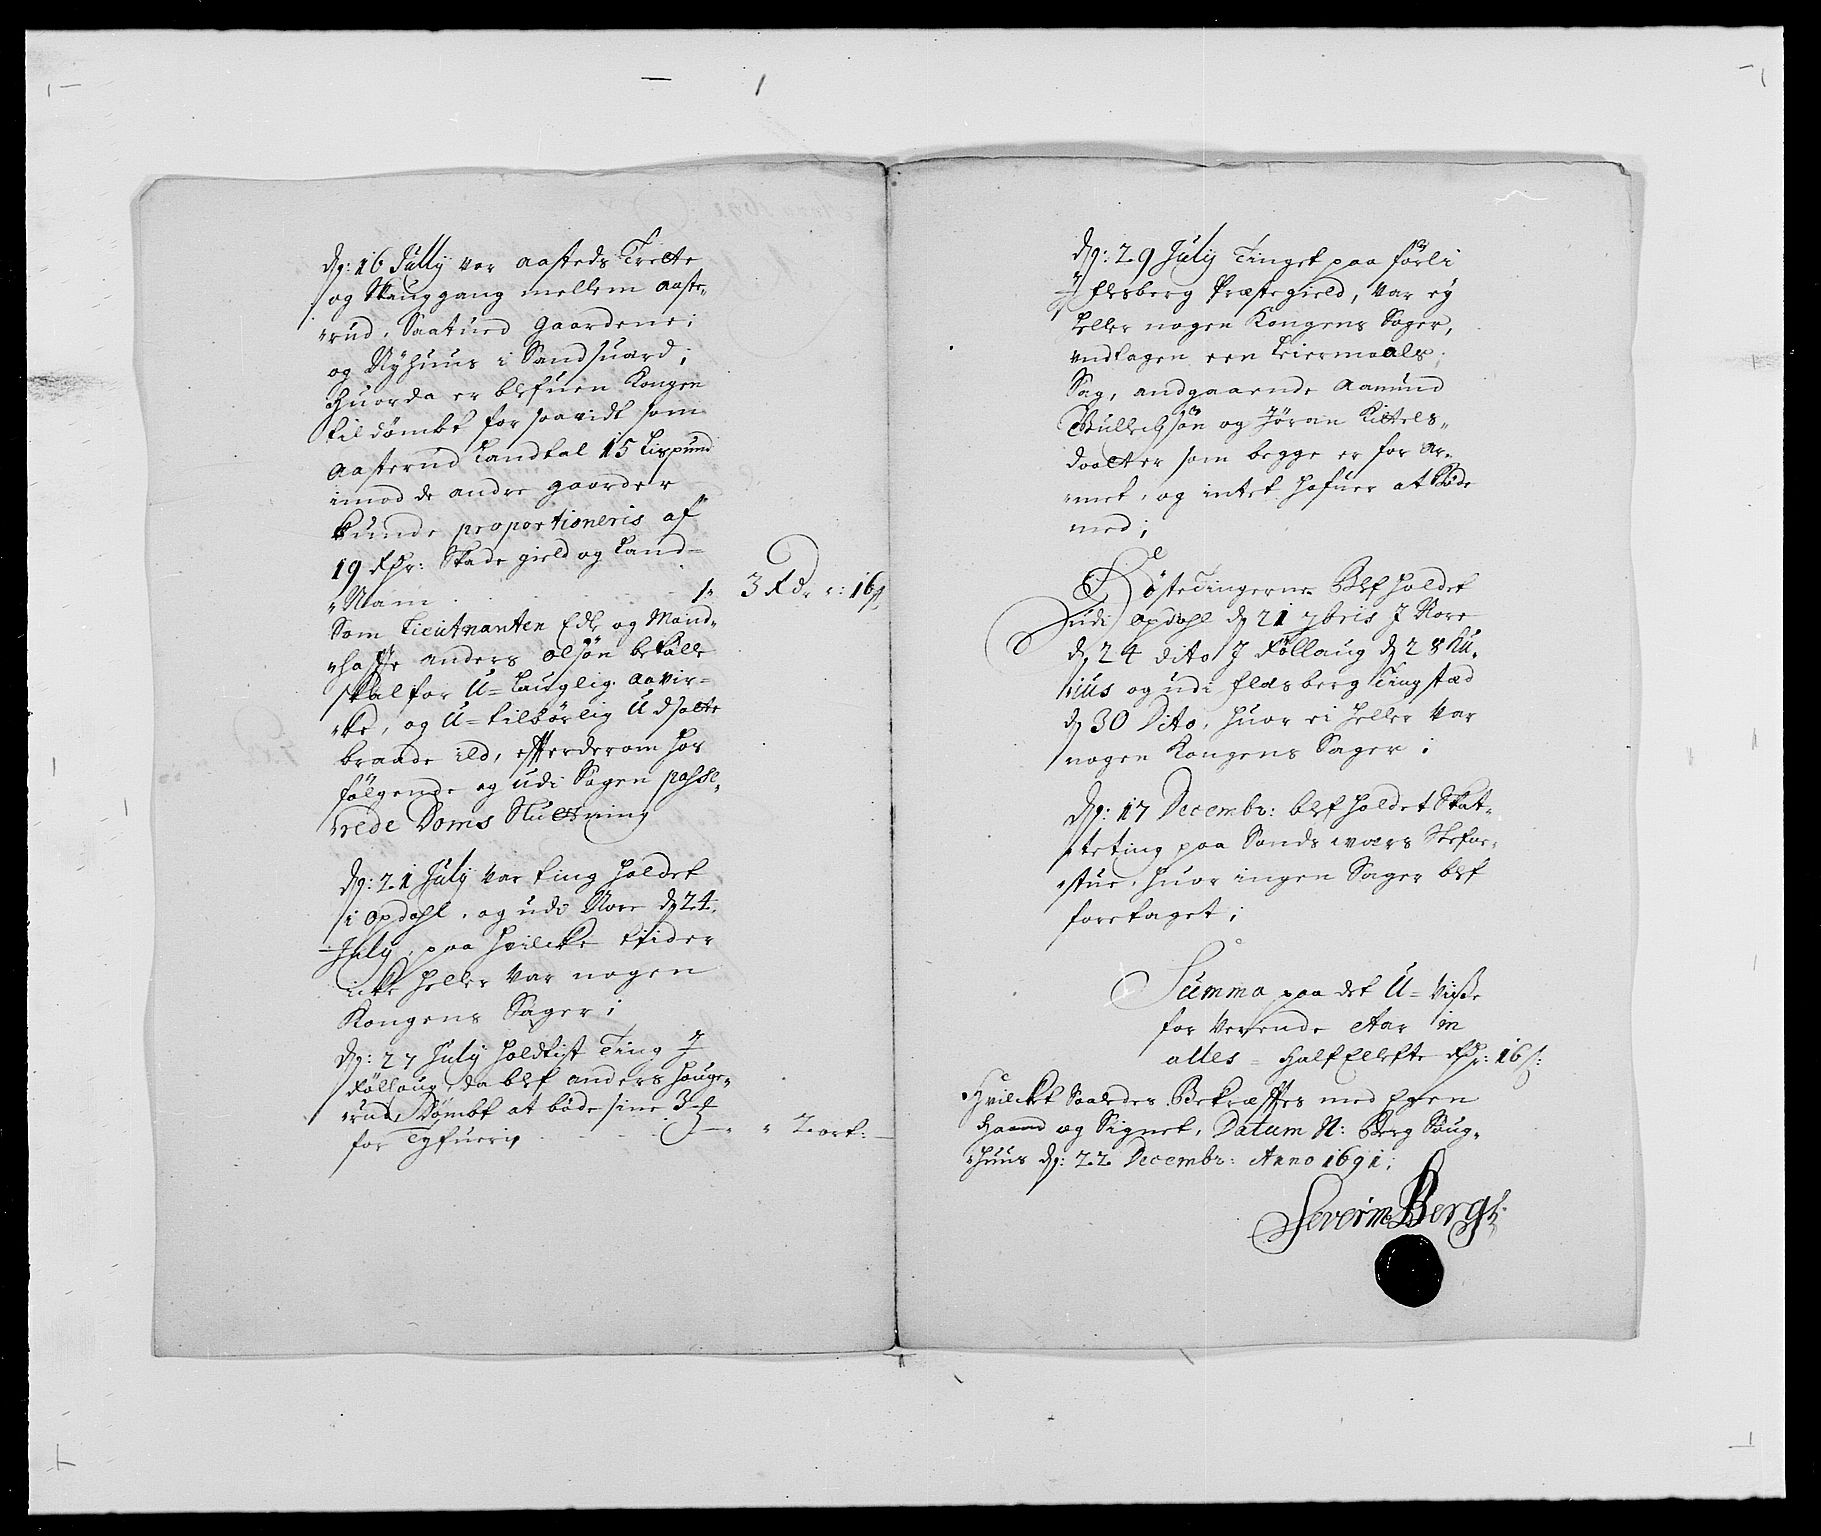 dg: 16 Jully var aasteds Trette
og Skauggang mellem aaste„
„rud, Saatued gaardene;
og Nyhuus i Sandsuerd;
Huorda er blefuen Kongen
til dömbt for saavidt som
aasterud Landtal 15 Lispund
imod de andre gaarder
kunde proportioneris af
19 Rdr: Skade gield og Land=
„Nam . 3 Rdr „: 16 s
Som Lieutnanten Edle og Mand„
„haffte anders olsön betalle
skal for U=Lauglig aavir=
„ke, og U=tilbörlig Udsatte
braade ild, efterderom hos
fölgende og udi Sagen passe„
„rede Doms Slutning
dg: 21 July var ting holdet
i Opdahl, og udi Nore dg 24
July, paa hvilcke tider
icke heller var nogen
Kongens Sager;
dg: 27 July holdtist Ting J
Röllaug, da blef anders houge„
„rud Dömbt at böde sine 3
for Tyfueri „ „ 2 ort: —
dg: 29 July Tinget paa förli
J flesberg Præstegield, var ey
heller nogen Kongens Sager,
undtagen een Leiermaals
Sag, andgaaende Aamund
Gullichsön og Jöran Kittels„
daatter som begge er for ar„
„met, og intet hafuer at böde
med;
Höstetingerne Blef holdet
udi Opdahl dg 21 7bris J Nore
dg 24 dito J Röllaug dg 28 hu„
„ius og udi flesberg Tingstæd
dg 30 Dito, huor ei heller var
nogen Kongens Sager;
dg: 17 Decembr: blef holdet Skat„
„teting paa Sandsværs Skafer„
„stue, huor ingen Sager blef
foretaget;
Summa paa det U=Visse
for Verende Aar in
alles = Half Ellefte Rdr: 16 s:
Hvilcket Saaledes Bekræfftes med Egen
Haand og Signet, Datum N: Berg Söug„
„huus dg: 22 Decembr: Anno 1691;
Severin Berg